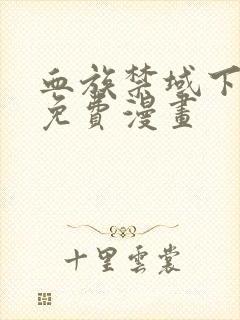 血族禁域下
免費漫畫
十里雲裳